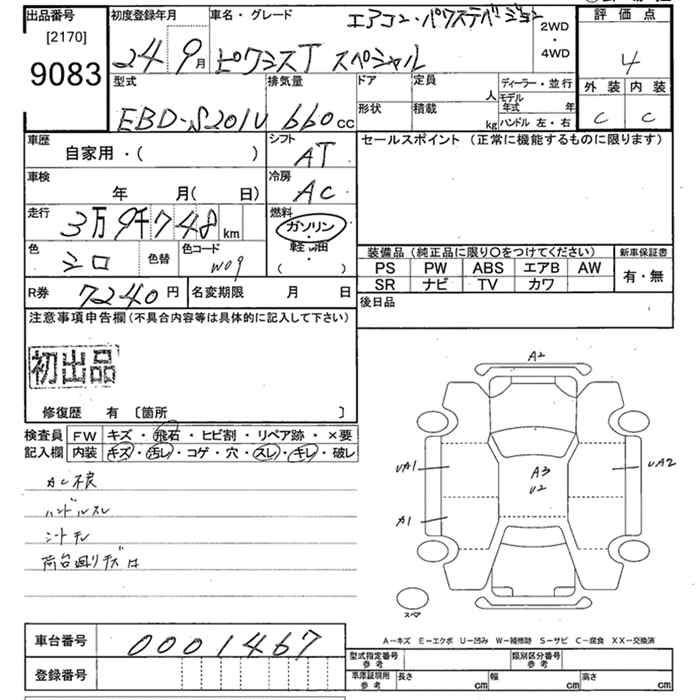 出品番号 [2170] 9083
初度登録年月 24 9月
車名・グレード エアコン・パワステバージョン
ピクシスT スペシャル
2WD ・ 4WD
評価点 4
外装 内装
C C
型式 EBD-S201U
排気量 660cc
ドア 定員 人
形状 積載 kg
ディーラー・並行
モデル年式 年
ハンドル 左・右
車歴 自家用・( )
シフト AT
セールスポイント (正常に機能するものに限ります)
車検 年 月( 日)
冷房 AC
走行 3万9千748km
燃料 ガソリン・軽油・( )
色 シロ 色替 色コード W09
装備品 (純正品に限り○をつけてください) 新車保証書
PS PW ABS エアB AW 有・無
SR ナビ TV カワ
R券 7240円 名変期限 月 日
後日品
注意事項申告欄 (不具合内容等は具体的に記入して下さい)
初出品
修復歴 有 〔箇所 〕
検査員 FW キズ・飛石・ヒビ割・リペア跡・×要
記入欄 内装 キズ・汚レ・コゲ・穴・スレ・キレ・破レ
AC不良
ハンドルスレ
シートキレ
荷台廻りキズ
A2
UA1 A3 UA2
U2
A1
スペア
A-キズ E-エクボ U-凹み W-補修跡 S-サビ C-腐食 XX-交換済
車台番号 0001467
型式指定番号 参考 類別区分番号 参考
登録番号
車庫証明用 参考 長さ cm 幅 cm 高さ cm